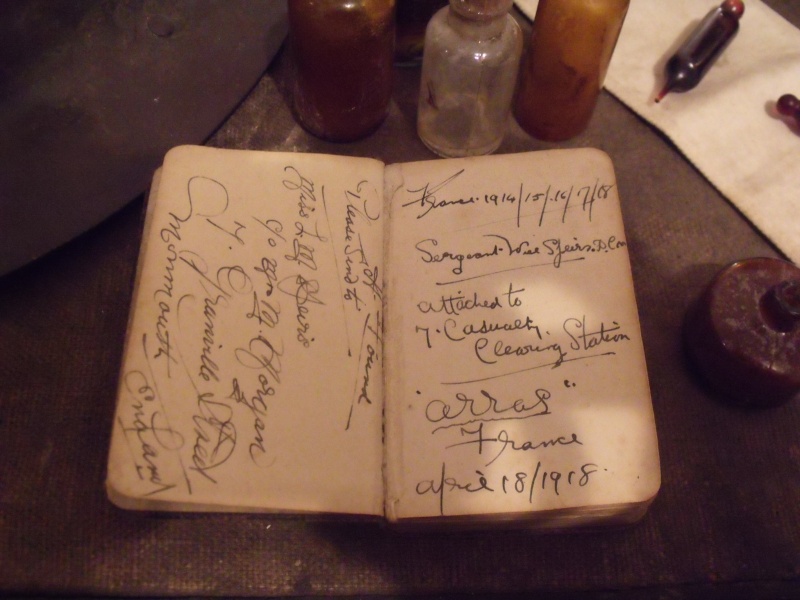 If Found
Please Send to
Miss L M Speirs
c/o Mrs M Morgan
7.
Granville Street
Monmouth
England
France 1914/15/16/7/18
Sergeant Speirs. D.Cm
attached to
7. Casualty
Clearing Station
"arras"
France
april 18/1918.